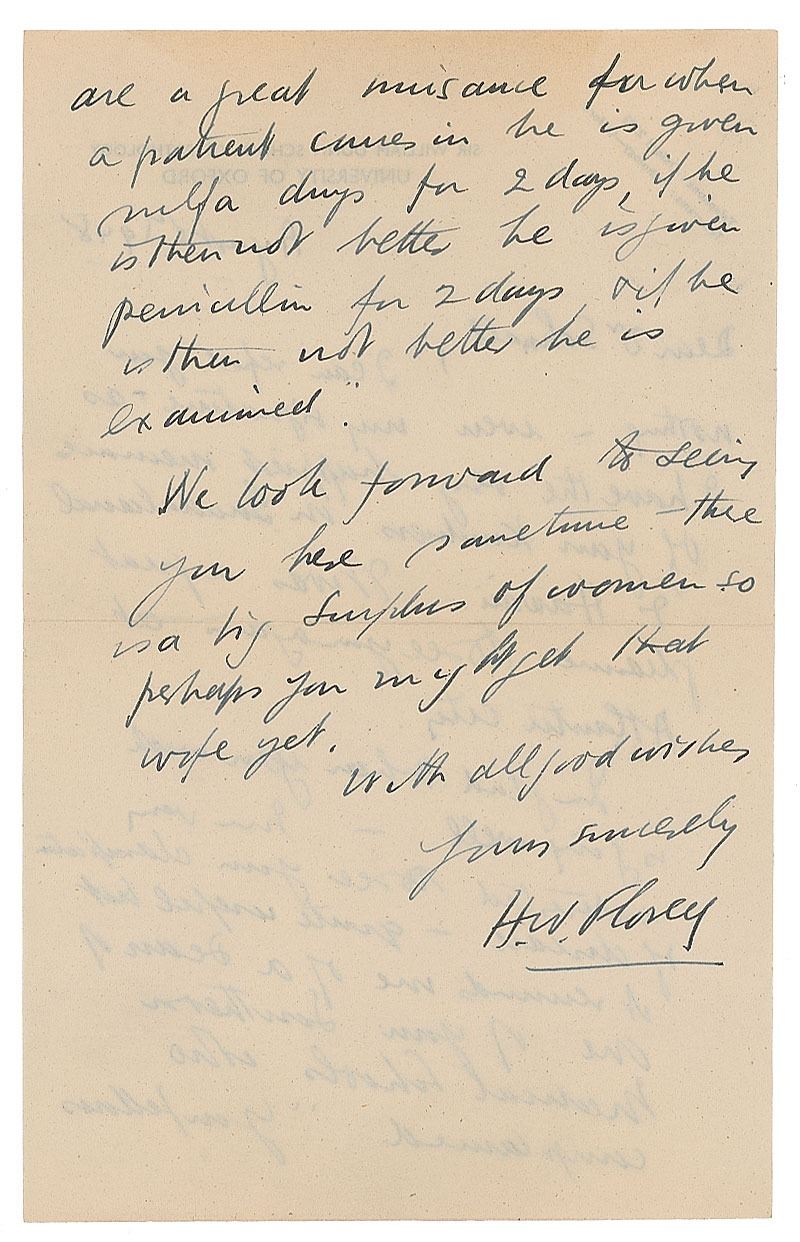 are a great nuisance for when
a patient comes in he is given
sulfa drugs for 2 days, if he
is then not better he is given
penicillin for 2 days, & if he
is then not better he is
examined".
We look forward to seeing
you here sometime – there
is a big surplus of women so
perhaps you might get that
wife yet.
With all good wishes
Yours sincerely
H.W. Florey